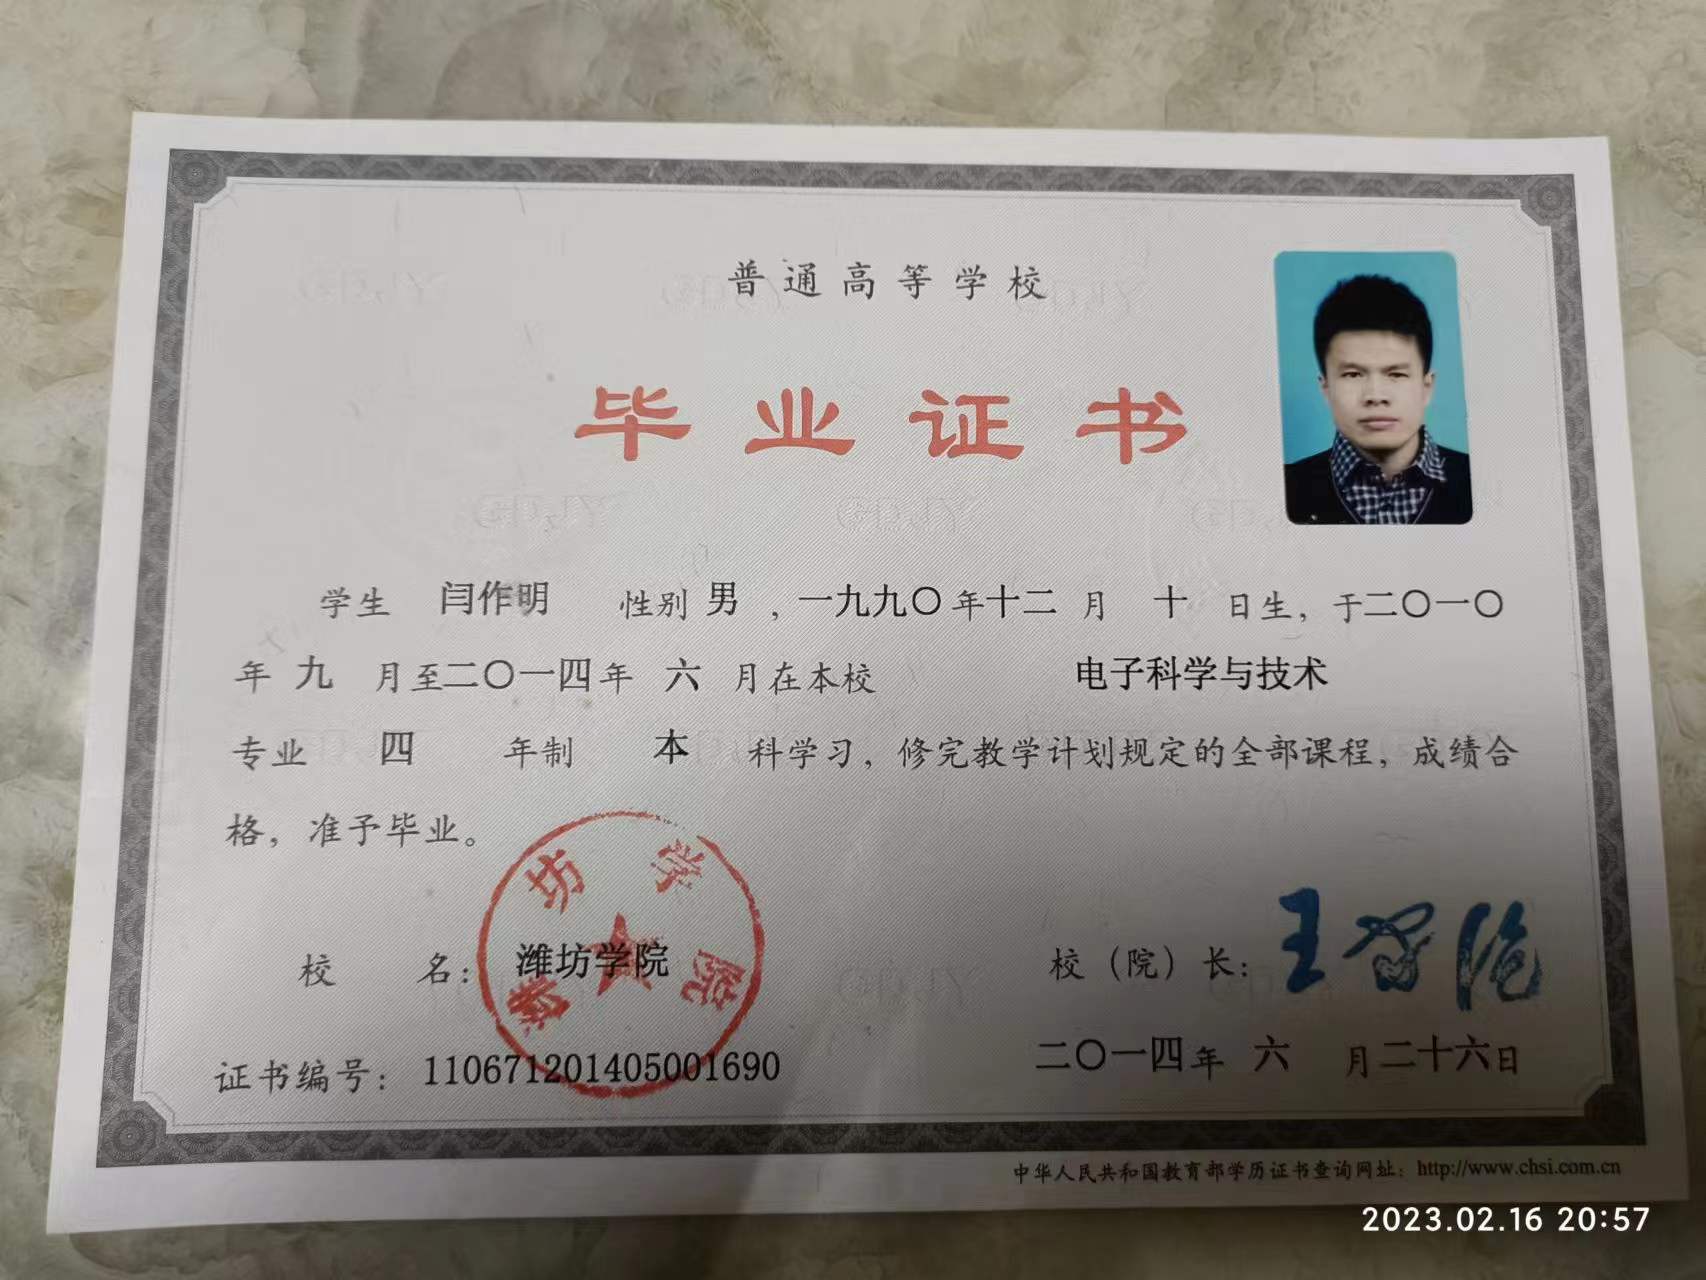 普通高等学校
毕业证书
学生 闫作明 性别 男 ，一九九〇年十二 月 十 日生，于二〇一〇
年 九 月至二〇一四年 六 月在本校 电子科学与技术
专业 四 年制 本 科学习，修完教学计划规定的全部课程，成绩合
格，准予毕业。
潍坊学院
校 名：潍坊学院
校（院）长：
证书编号：110671201405001690
二〇一四年 六 月二十六日
中华人民共和国教育部学历证书查询网址：http://www.chsi.com.cn
2023.02.16 20:57